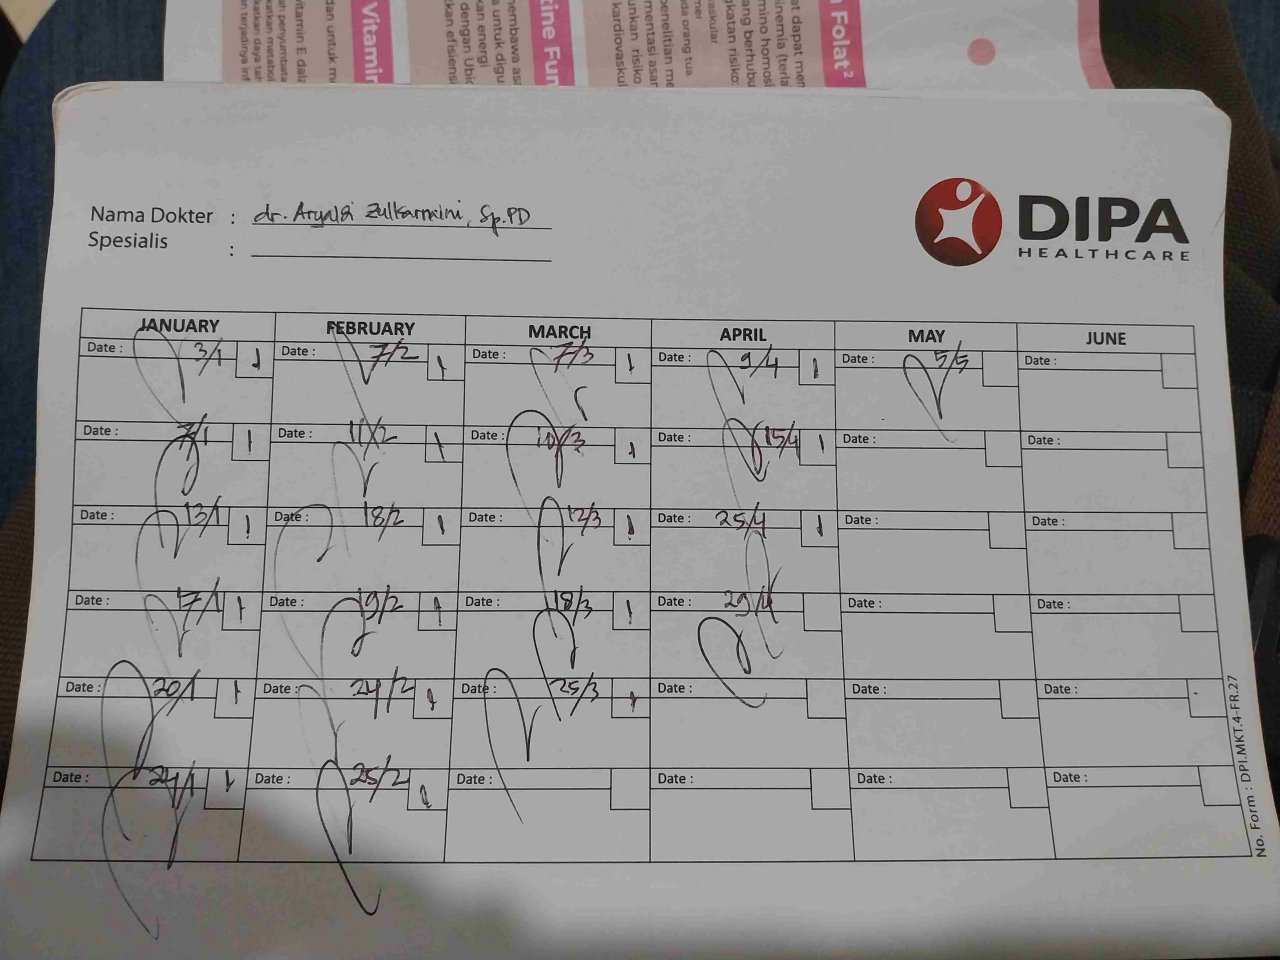 n Folat²
tine Fun
Vitamin
DIPA
HEALTHCARE
Nama Dokter : dr. Aryaldi Zulkarnaini, Sp.PD
Spesialis :
JANUARY FEBRUARY MARCH APRIL MAY JUNE
Date : 3/1 1 Date : 7/2 1 Date : 7/3 1 Date : 9/4 1 Date : 5/5 Date :
Date : 7/1 1 Date : 11/2 1 Date : 10/3 1 Date : 15/4 1 Date : Date :
Date : 13/1 1 Date : 18/2 1 Date : 12/3 1 Date : 25/4 1 Date : Date :
Date : 17/1 1 Date : 19/2 1 Date : 18/3 1 Date : 29/4 Date : Date :
Date : 20/1 1 Date : 24/2 1 Date : 25/3 1 Date : Date : Date :
Date : 24/1 1 Date : 25/2 1 Date : Date : Date : Date :
No. Form : DPI.MKT.4-FR.27